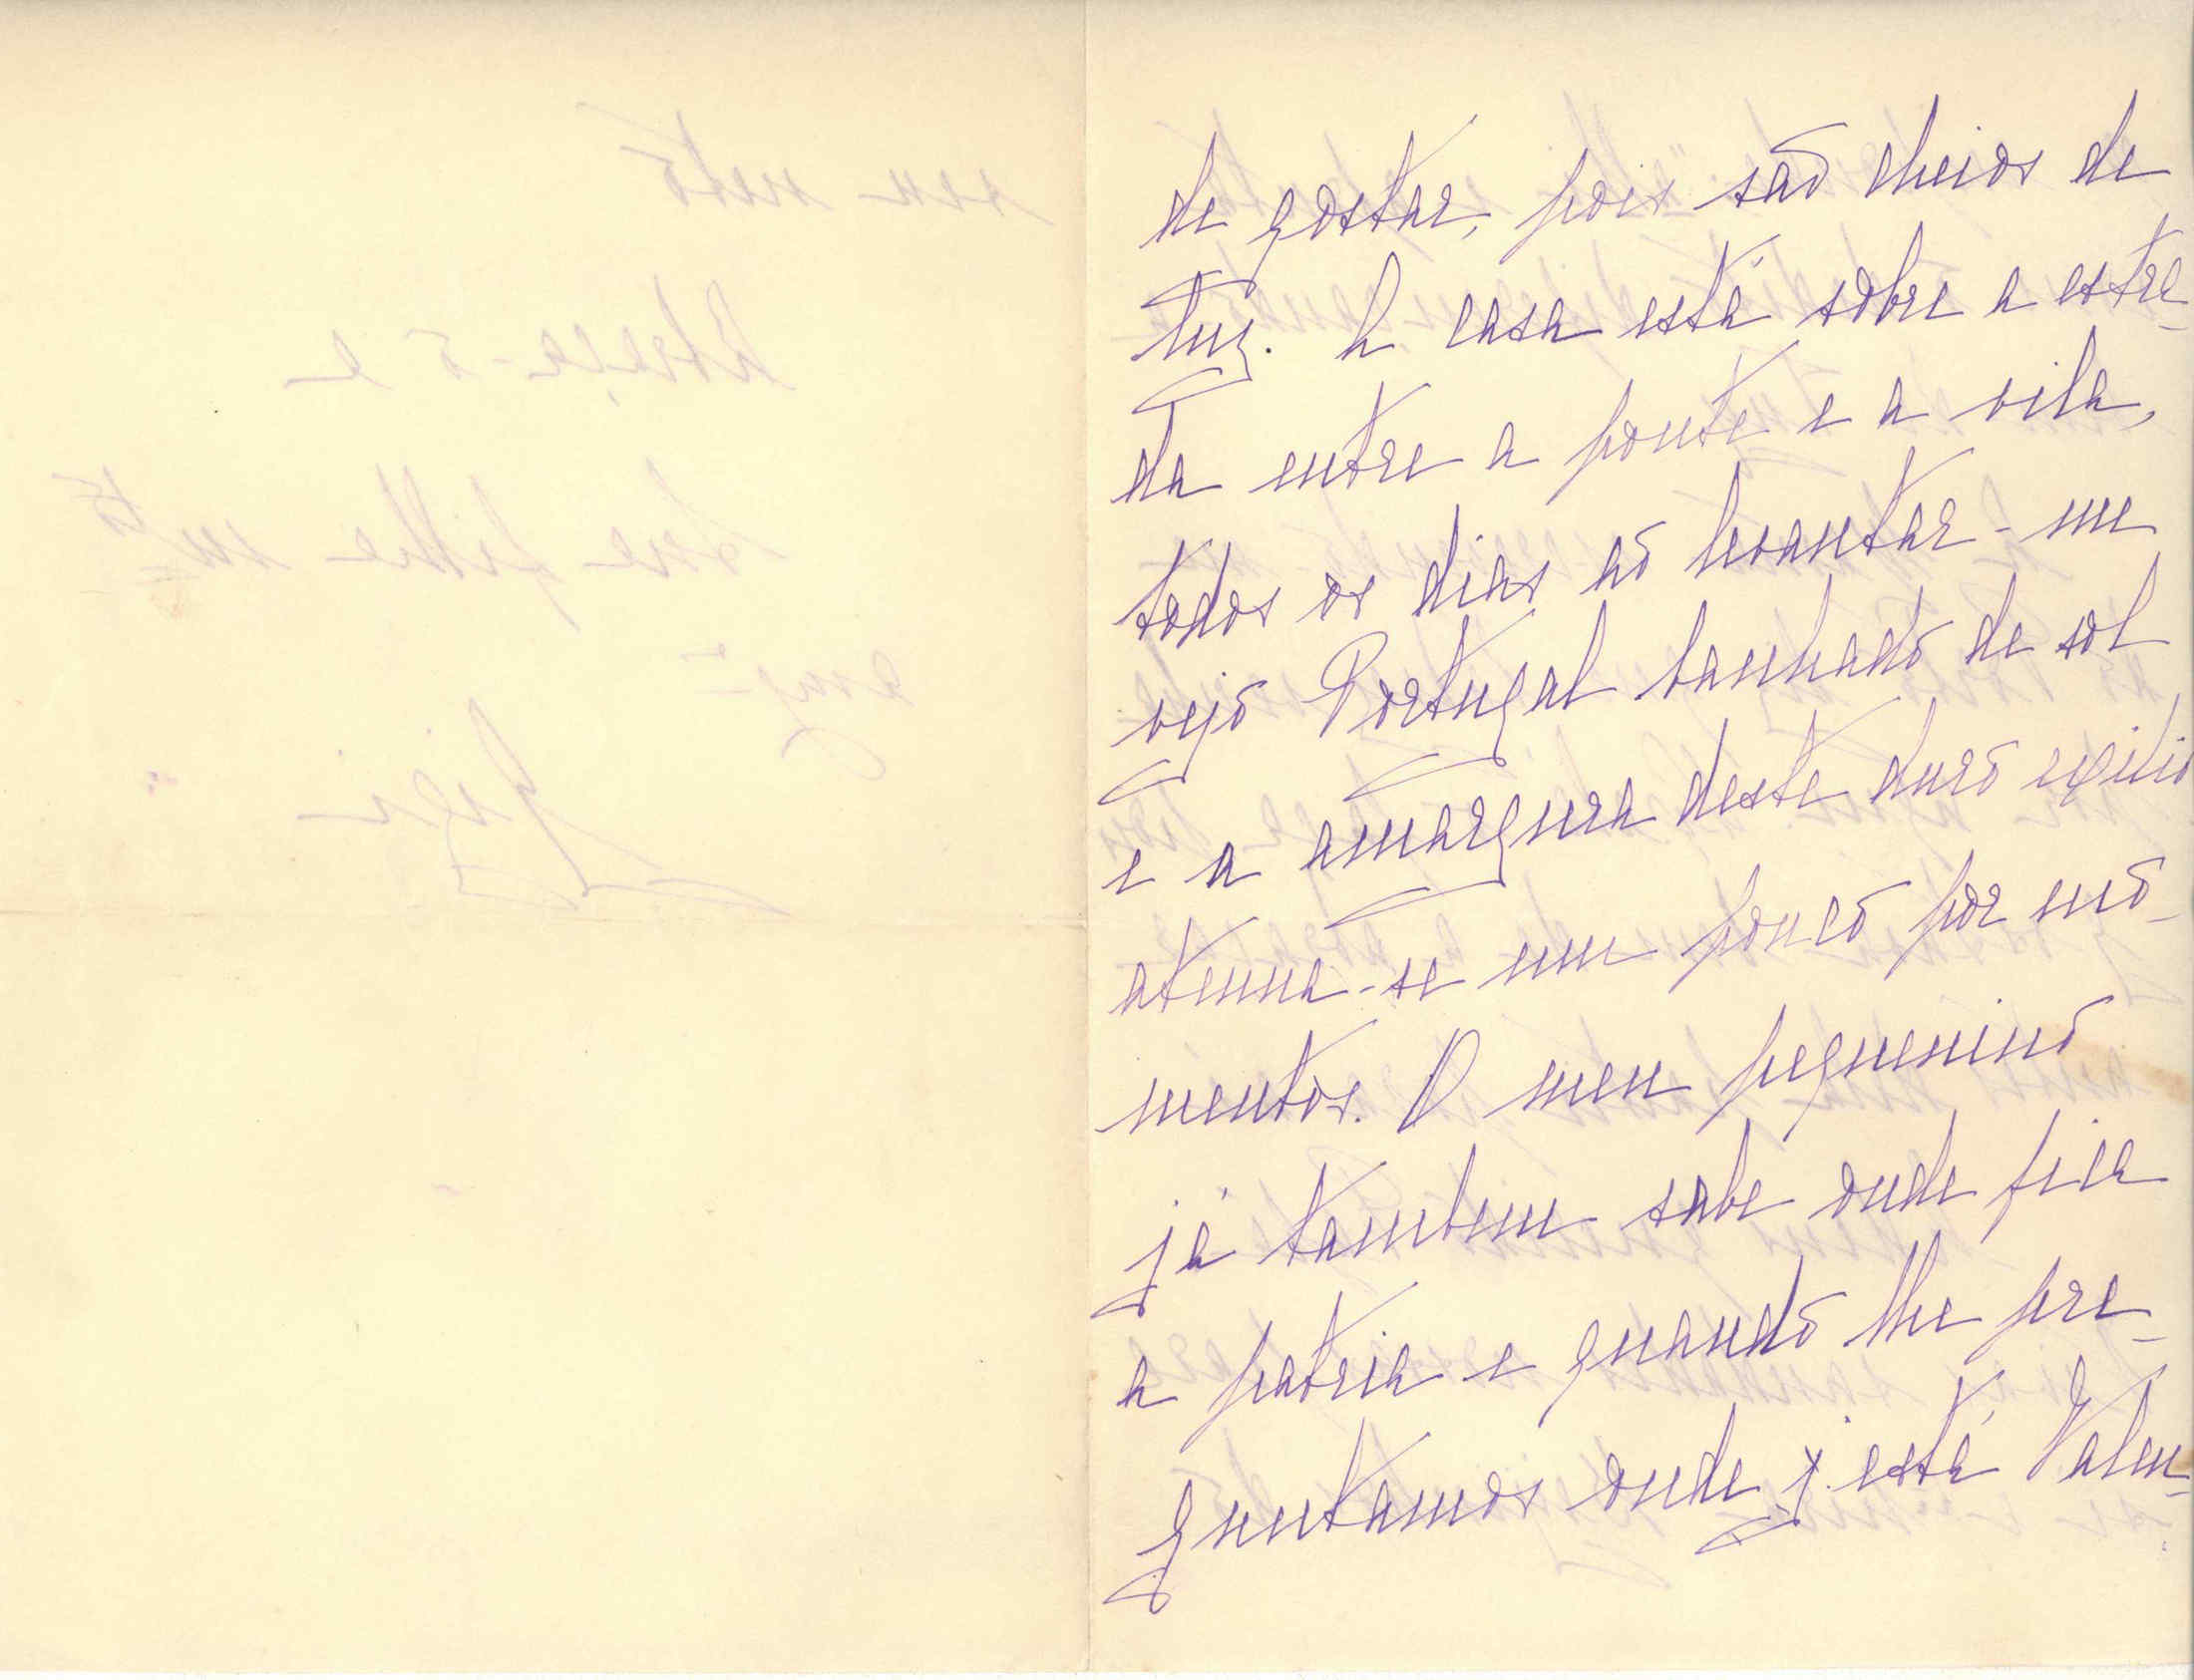 de gostar, pois são cheios de
luz. A casa está sobre a estra-
da entre a ponte e a vila,
todos os dias ao levantar-me
vejo Portugal banhado de sol
e a amargura deste duro exilio
atenua-se um pouco por mo-
mentos. O meu pequenino
já tambem sabe onde fica
a patria e quando lhe pre-
guntamos onde está Valen-
seu neto
Abraça-o a
sua filha mto
amga